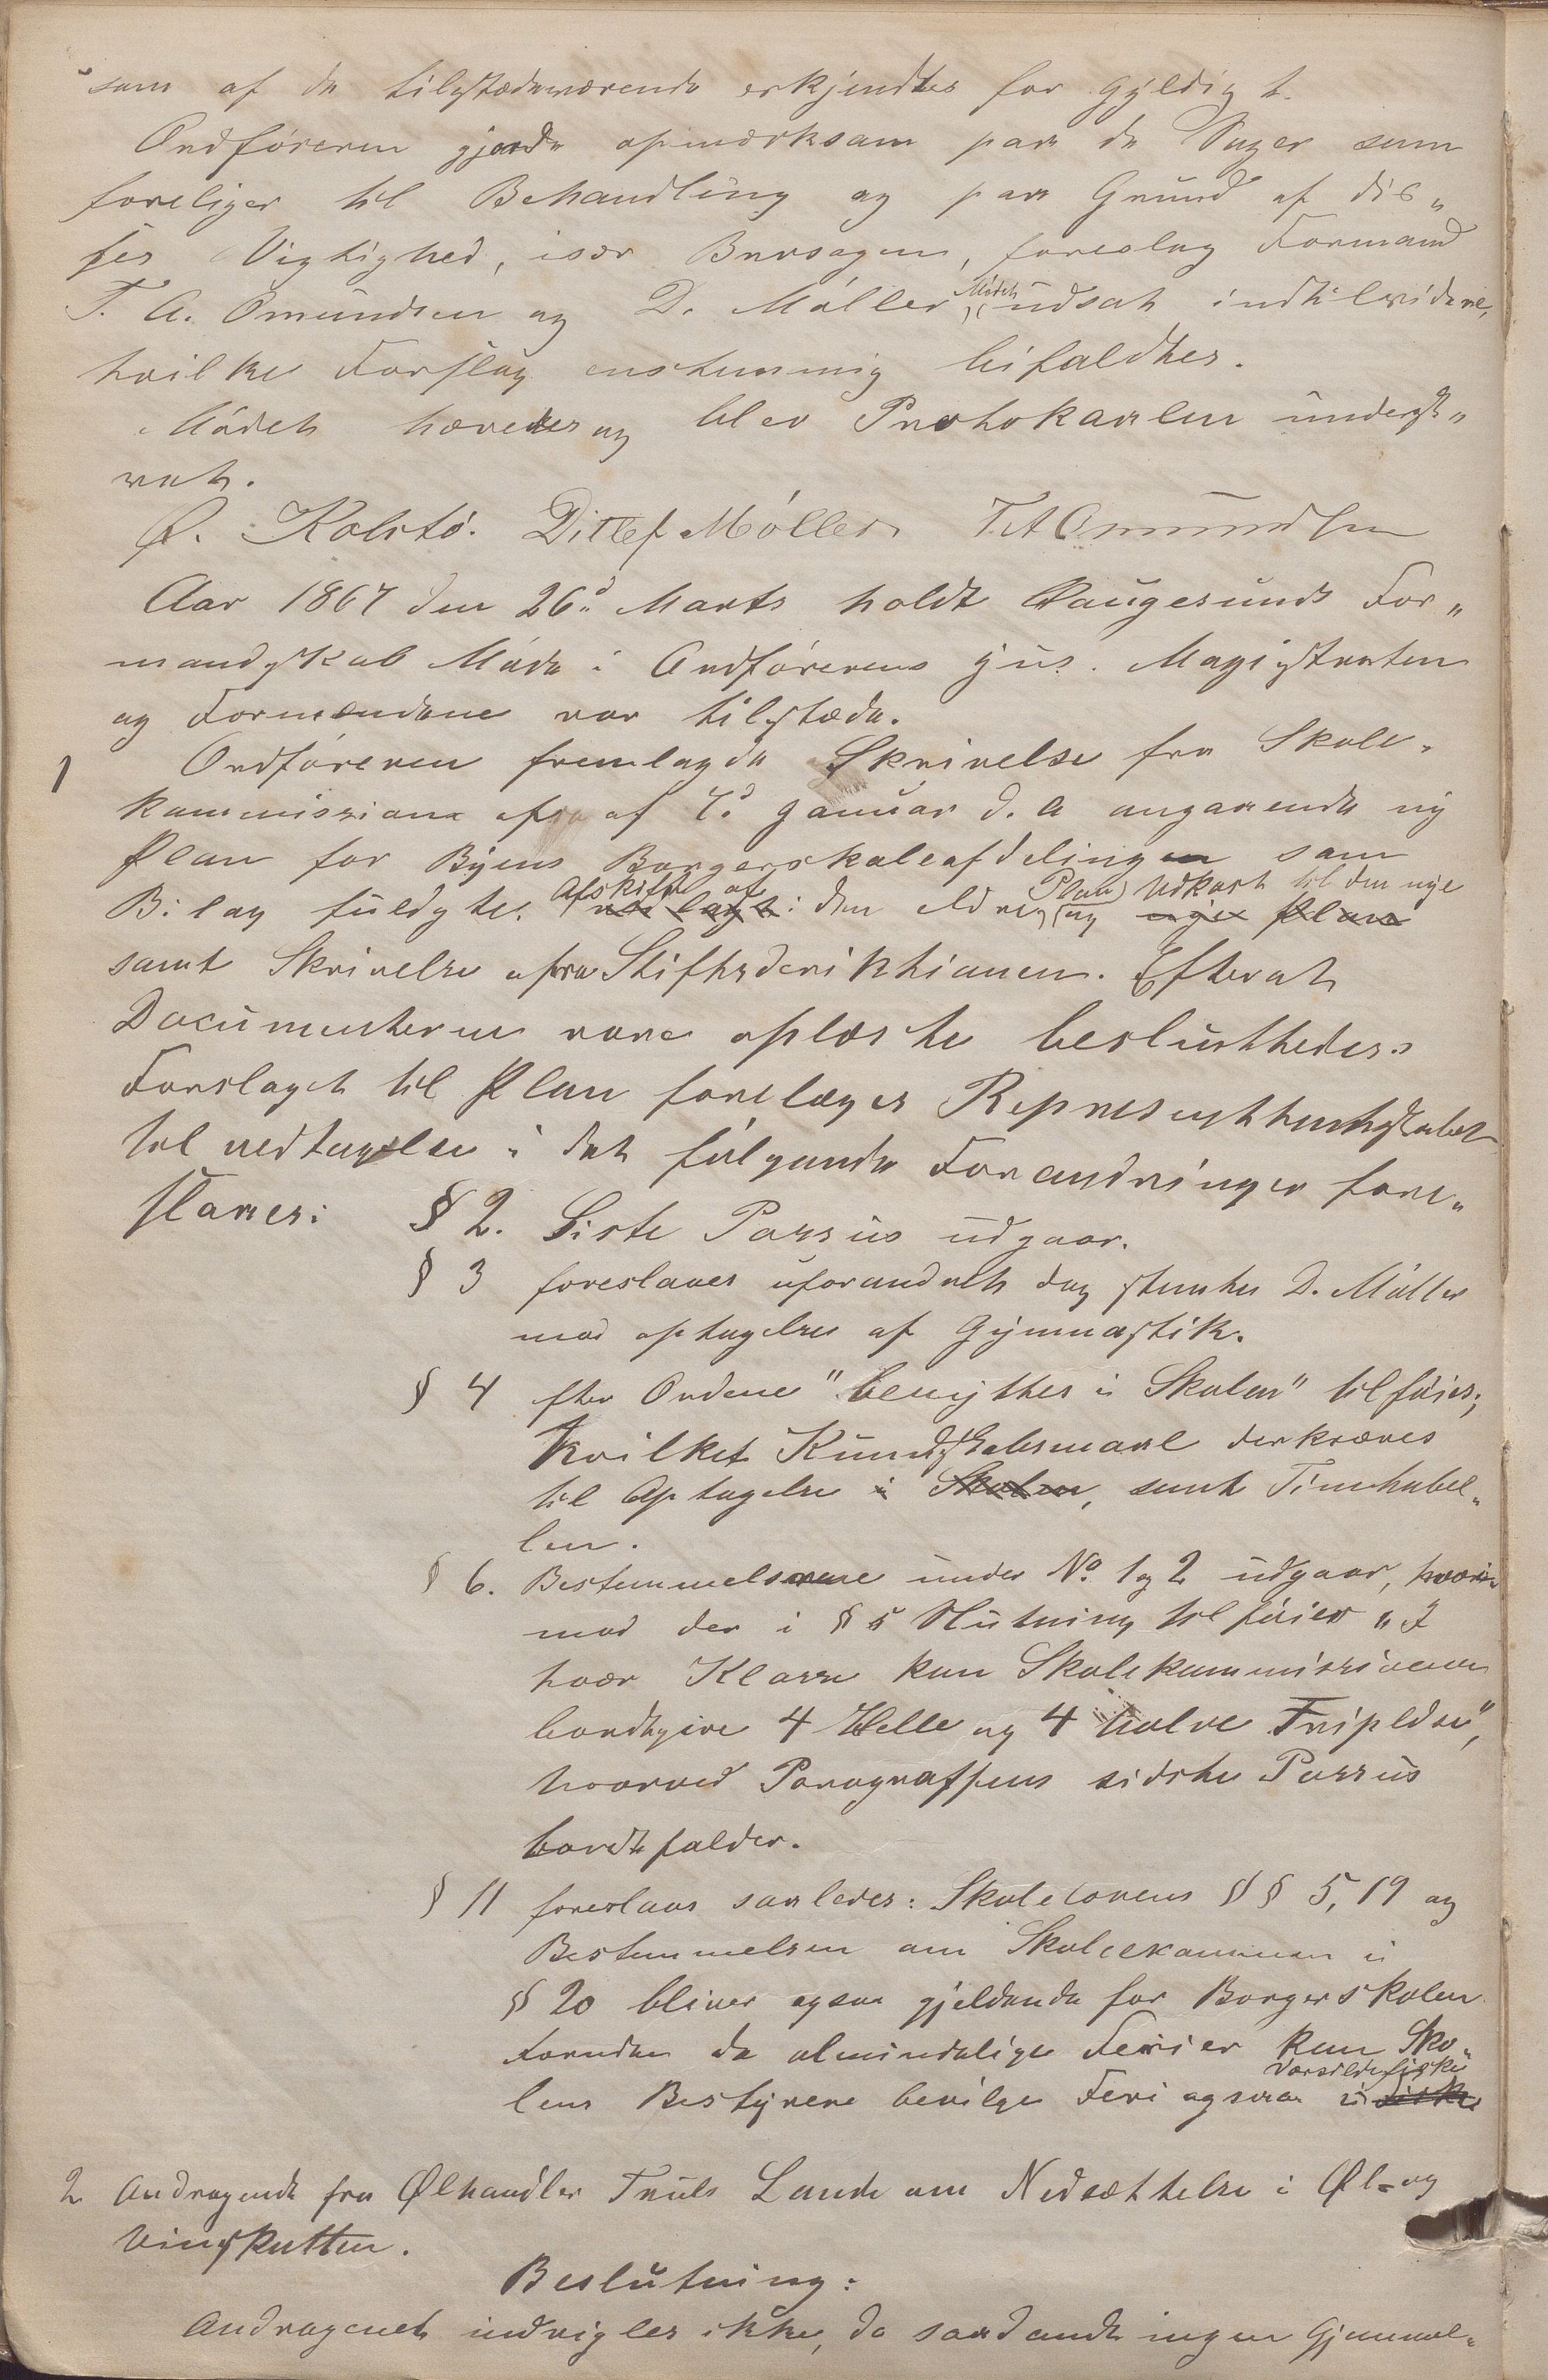 som af de tilstædeværende erkjendtes for gyldigt.
Ordføreren gjorde opmærksom paa de Sager som
foreliger til Behandling og paa Grund af dis„
ses Vigtighed, især Bursagen, foreslog Formand
T. A. Omundsen og D. Møller Mødet udsat indtilvidere,
hvilke Forslag enstemmig bifaldtes.
Mødet hævedes og blev Protokaalen underst„
revet.
Ø. Kolstø. Ditlef Møller T. A Omundsen
Aar 1867 den 26d Marts holdt Haugesunds For„
mandskab Møde i Ordførerens Hus. Magistraten
og Formændene var tilstæde.
1 Ordføreren fremlagde Skrivelse fra Skole„
kommissione af 7d Januar d. A angaaende ny
Plan for Byens Borgerskoleafdeling som
Bilag fuldgte. Afskift af den eldre Plan og Udkast til den nye
samt Skrivelse fra Stiftsderiktionen. Efterat
Documenterne vare oplæste besluttedes
Forslaget til Plan forelæges Representantskabet
til vedtagelse i det følgende Forandringer fore„
slaaes: § 2. Siste Passus udgaar.
§ 3 foreslaaes uforandrett dog stemte D. Møller
mod optagelse af Gymnastik.
§ 4 fter Ordene "benyttes i Skolen" tilføies;
hvilket Kundskabsmaal derkræves
til Optagelse i Skolen, samt Timetabel„
len.
§ 6. Bestemmelserne under No 1 og 2 udgaar, hvori
mod der i § 5 Slutning tilføies „I
hvær Klasse kan Skolekommissionen
bordtgive 4 Helle og 4 halve Fripldse",
hvorved Paragraffens sidste Passus
bordtfalder.
§ 11 foreslaas saaledes: Skolelovens §§ 5, 19 og
Bestemmelsen om Skoleexammen i
§ 20 bliver ogsaa gjeldende for Borgerskolen
Foruden de almindelige Ferier kan Sko„
lens Bestyrere bevilge Feri ogsaa i Vaarsildefiske
2 Andragende fra Ølhandler Truls Lande om Nedsættelse i Øl- og
Vinskatten.
Beslutning:
Andragenet indvigles ikke, da saadandt ingen Gjemmel„